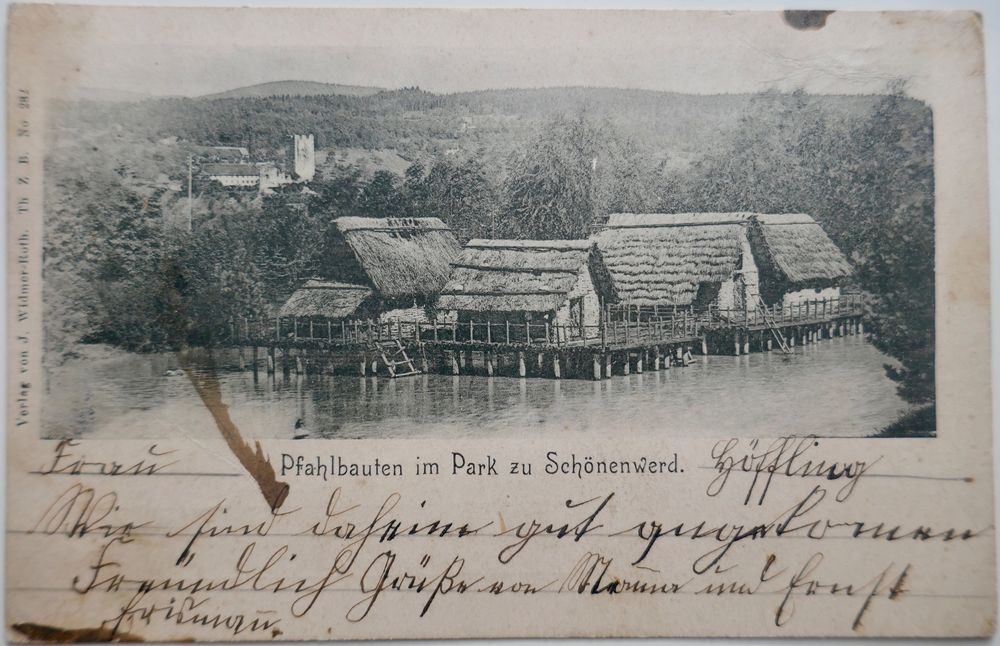 Verlag von J. Widmer-Roth. Th. Z. B. No 284
Pfahlbauten im Park zu Schönenwerd.
Frau Höffling
Wir sind daheim gut angekomen
Freündlich Grüße von Mama und Ernst